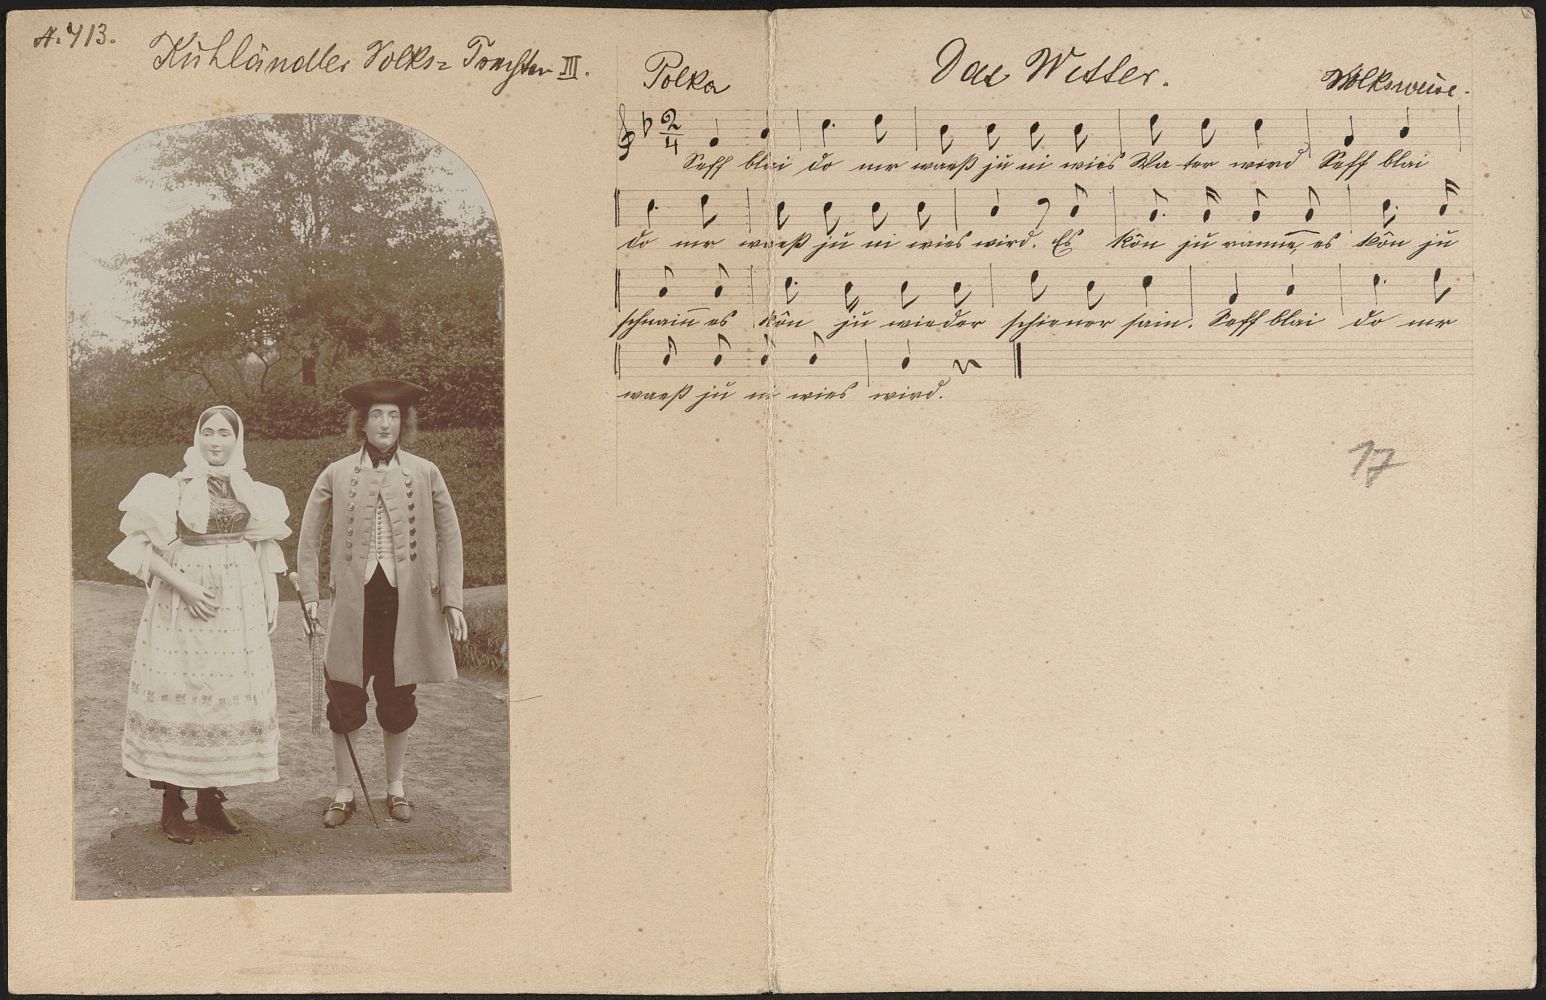 A. 413.
Kuhländler Volks= Trachten III.
Polka
Das Wetter.
Volksweise.
2/4
Seff blai do mr waeß ju ni wies Wa ter wird Seff blai
do mr waeß ju ni wies wird. Es kön ju rann, es kön ju
schnain es kön ju wieder schiener sain. Seff blai do mr
waeß ju ni wies wird.
17